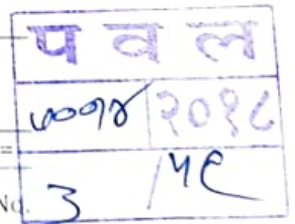 प व ल
७०१४ २०१८
No. ३ / ५९